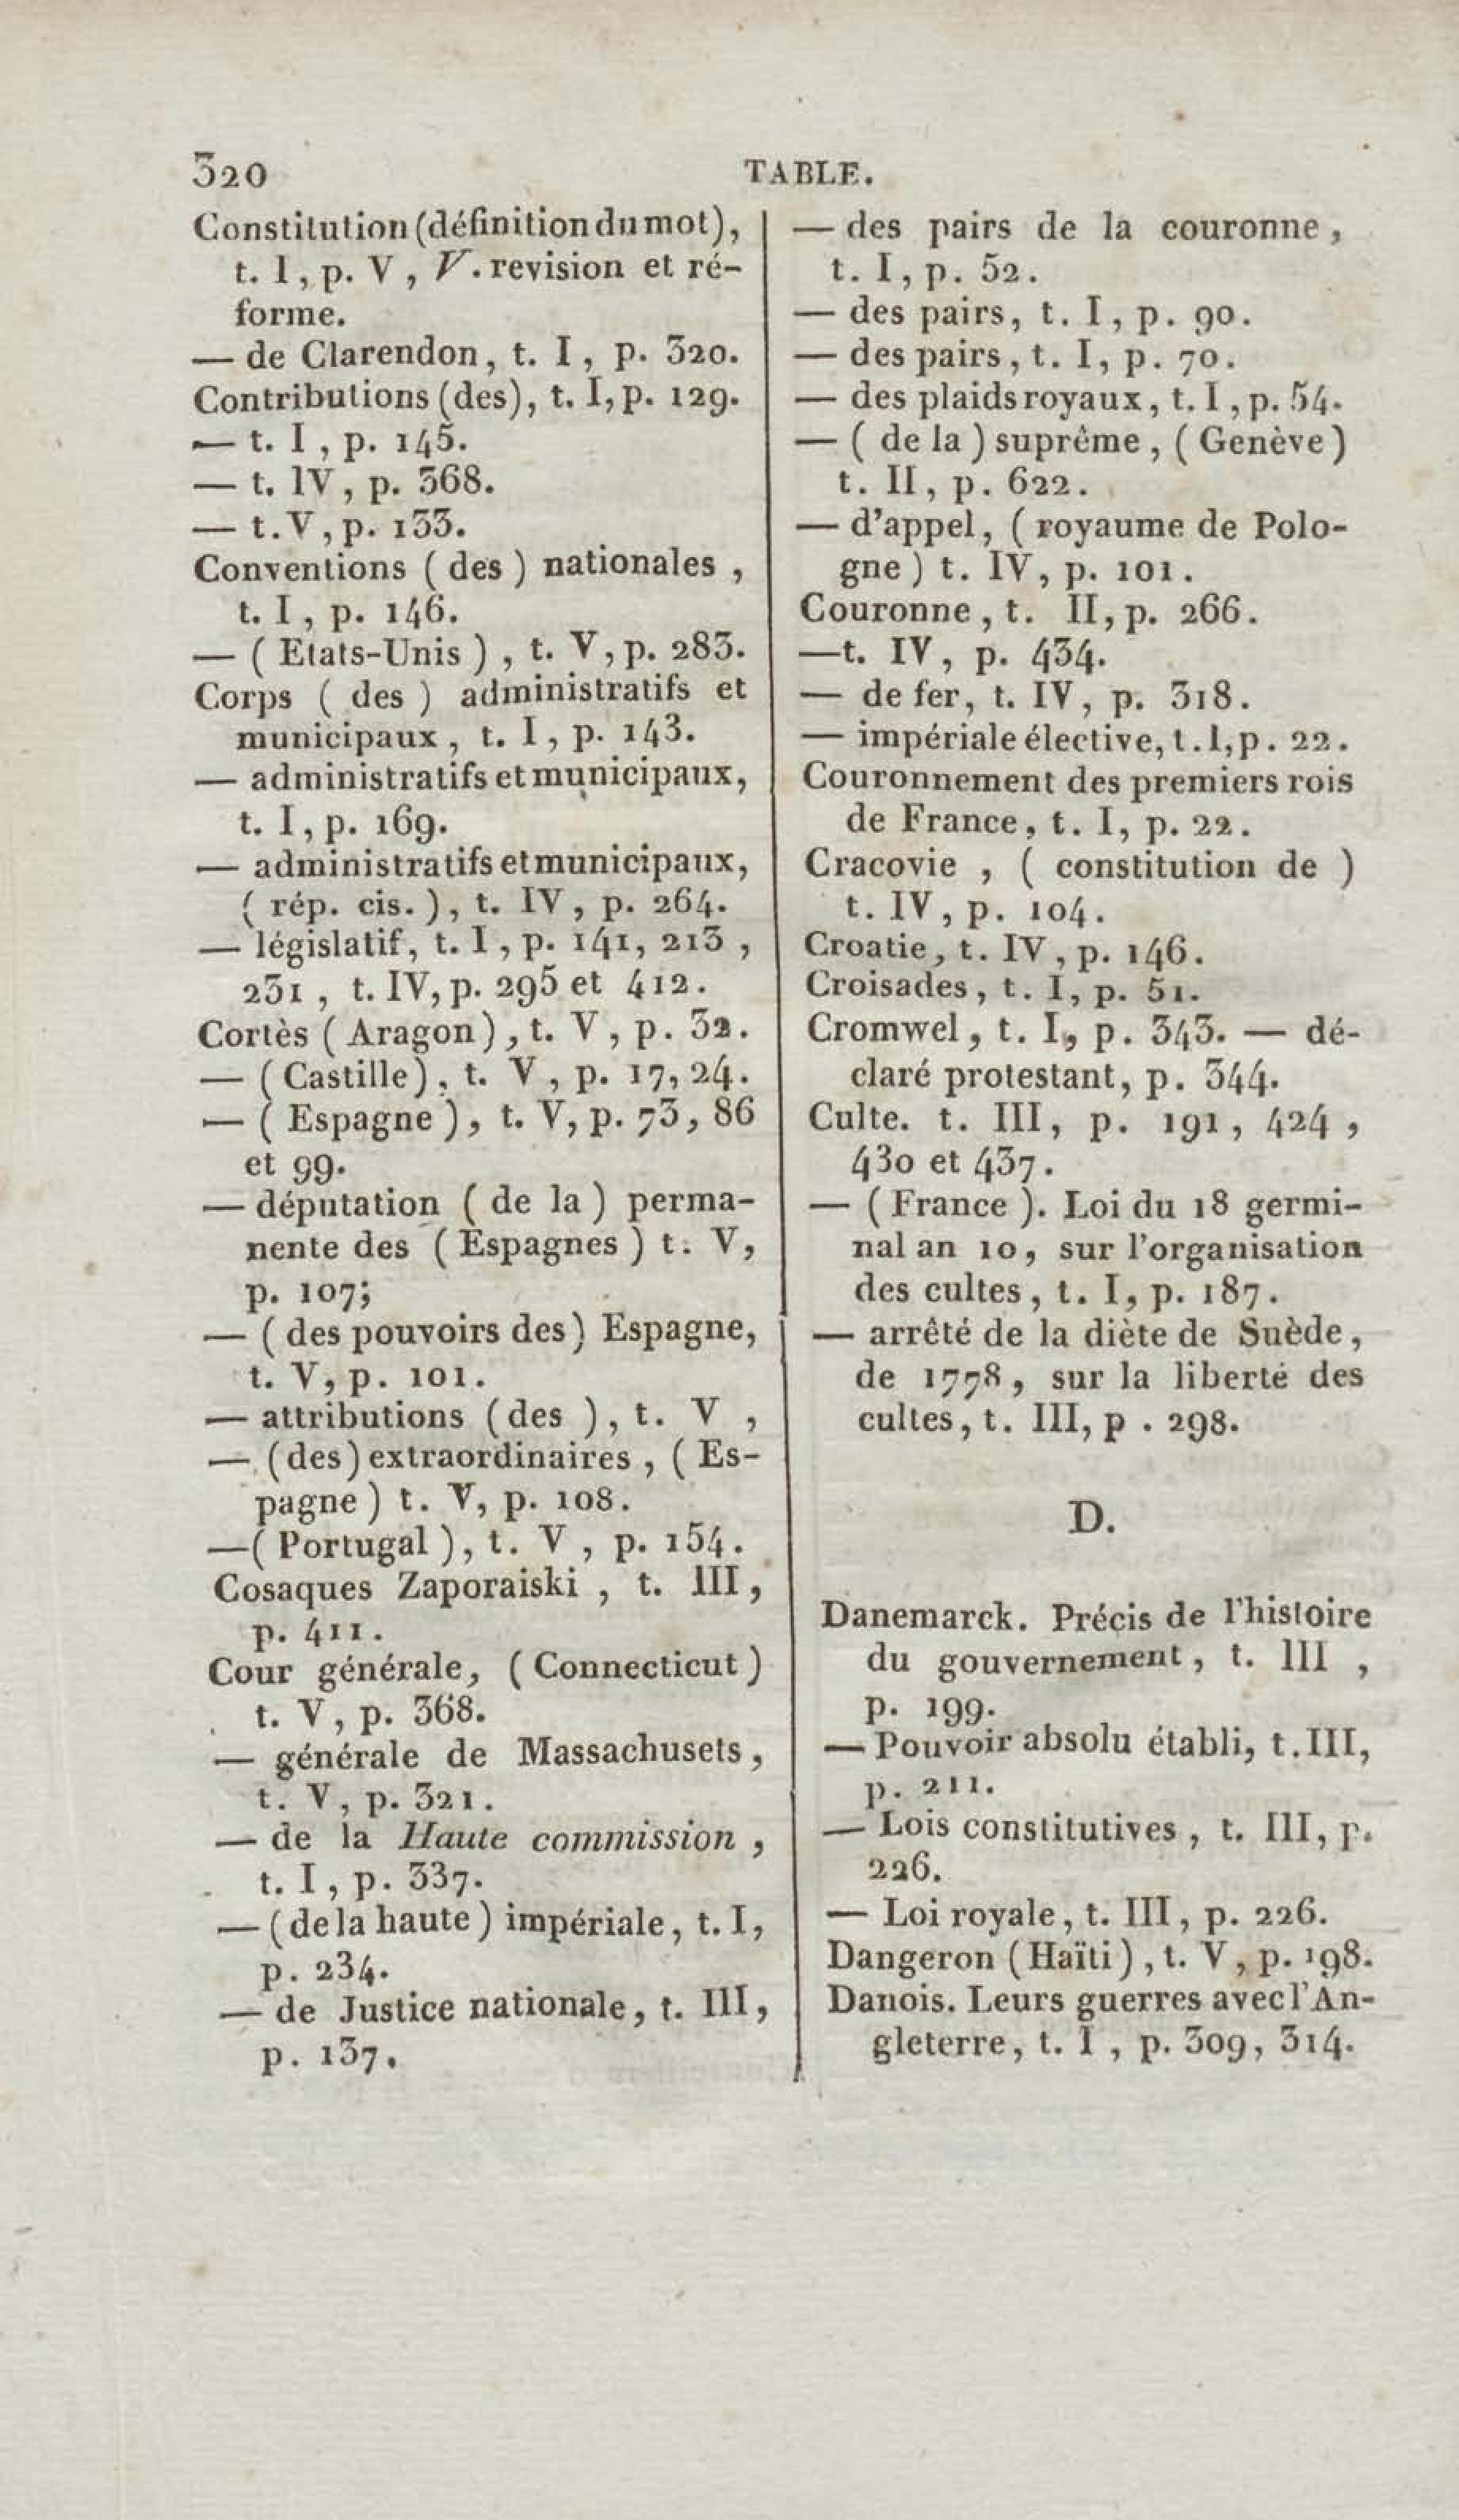 320 TABLE.
Constitution (définition du mot),
t. I, p. V, V. revision et ré-
forme.
— de Clarendon, t. I, p. 320.
Contributions (des), t. I, p. 129.
— t. I, p. 145.
— t. IV, p. 368.
— t. V, p. 133.
Conventions ( des ) nationales ,
t. I, p. 146.
— ( Etats-Unis ) , t. V, p. 283.
Corps ( des ) administratifs et
municipaux , t. I, p. 143.
— administratifs et municipaux,
t. I, p. 169.
— administratifs et municipaux,
( rép. cis. ), t. IV, p. 264.
— législatif, t. I, p. 141, 213 ,
231 , t. IV, p. 295 et 412.
Cortès ( Aragon) , t. V, p. 32.
— ( Castille), t. V, p. 17, 24.
— ( Espagne ), t. V, p. 73, 86
et 99.
— députation ( de la ) perma-
nente des ( Espagnes ) t. V,
p. 107;
— ( des pouvoirs des) Espagne,
t. V, p. 101.
— attributions (des ), t. V ,
— (des) extraordinaires , ( Es-
pagne ) t. V, p. 108.
—( Portugal ), t. V , p. 154.
Cosaques Zaporaiski , t. III,
p. 411.
Cour générale, ( Connecticut )
t. V, p. 368.
— générale de Massachusets,
t. V, p. 321.
— de la Haute commission ,
t. I, p. 337.
— ( de la haute ) impériale, t. I,
p. 234.
— de Justice nationale, t. III,
p. 137.
— des pairs de la couronne ,
t. I, p. 52.
— des pairs, t. I, p. 90.
— des pairs, t. I, p. 70.
— des plaids royaux, t. I, p. 54.
— ( de la ) suprême , ( Genève )
t. II, p. 622.
— d'appel, ( royaume de Polo-
gne ) t. IV, p. 101.
Couronne , t. II, p. 266.
—t. IV, p. 434.
— de fer, t. IV, p. 318.
— impériale élective, t. I, p. 22.
Couronnement des premiers rois
de France, t. I, p. 22.
Cracovie , ( constitution de )
t. IV, p. 104.
Croatie, t. IV, p. 146.
Croisades, t. I, p. 51.
Cromwel, t. I, p. 343. — dé-
claré protestant, p. 344.
Culte. t. III, p. 191, 424 ,
430 et 437.
— ( France ). Loi du 18 germi-
nal an 10, sur l'organisation
des cultes, t. I, p. 187.
— arrêté de la diète de Suède,
de 1778, sur la liberté des
cultes, t. III, p . 298.
D.
Danemarck. Précis de l'histoire
du gouvernement , t. III ,
p. 199.
— Pouvoir absolu établi, t. III,
p. 211.
— Lois constitutives , t. III, p.
226.
— Loi royale, t. III, p. 226.
Dangeron (Haïti) , t. V, p. 198.
Danois. Leurs guerres avec l'An-
gleterre, t. I , p. 309, 314.